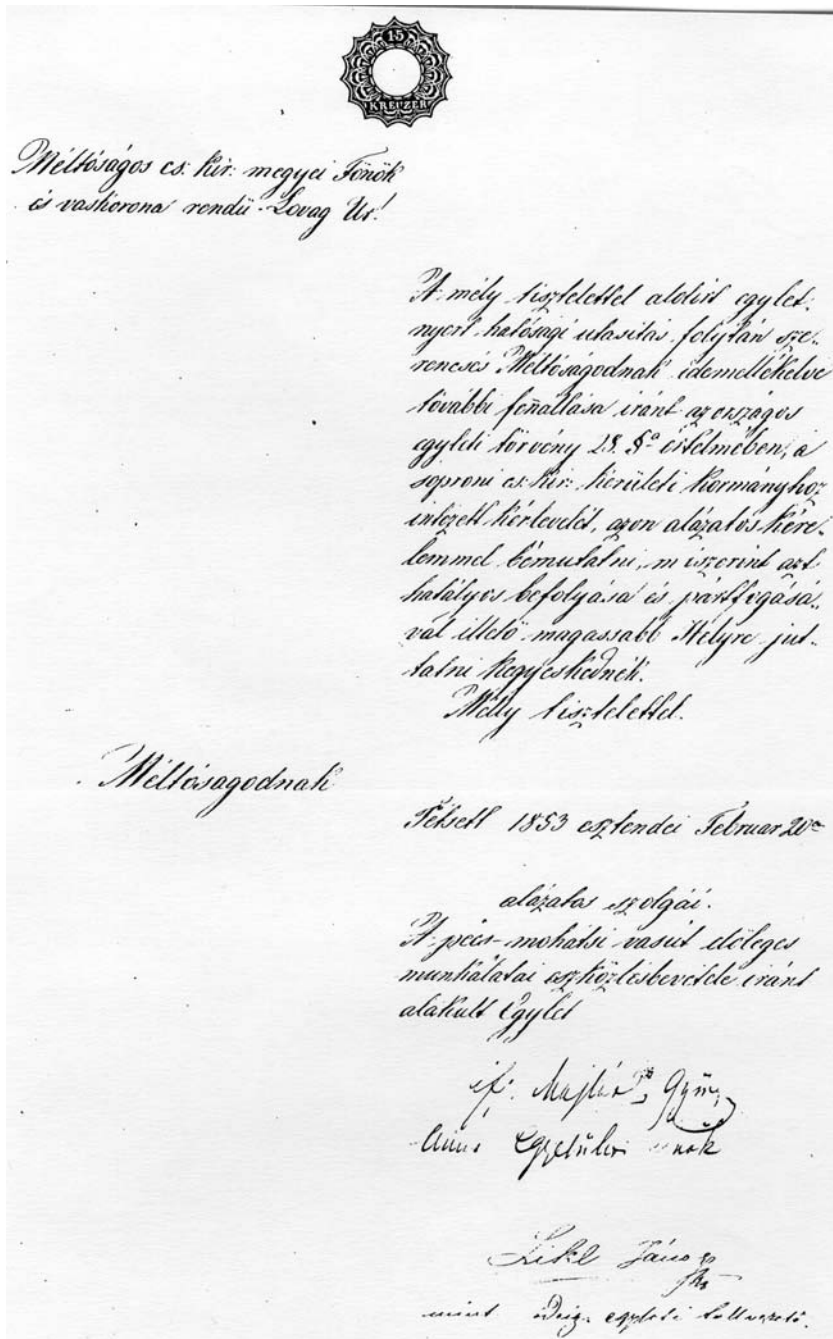 15
KREUZER
Méltóságos cs: kir: megyei Fönök
és vaskorona rendü Lovag Ur!
A mély tisztelettel aloirt egylet
nyert hatósági utasitás folytán sze„
rencsés Méltóságodnak idemellékelve
további fenállása iránt az országos
egyleti törvény 28. §a értelmében, a
soproni cs: kir: kerületi kormányhoz
intézett kérlevelét, azon alázatos kére„
lemmel bémutatni, miszerint azt
hatályos befolyása és pártfogásá„
val illető magassabb Helyre jut„
tatni kegyeskednék.
Mély tisztelettel.
Méltóságodnak
Pétsett 1853 esztendei Februar 20án
alázatos szolgái.
A pécs-mohátsi vasút elöleges
munkálatai eszközlésbevétele iránt
alakult Egylet
if: Majláth György
mint Egyesületi Elnök
Likl János
mint egyleti tollvezető.